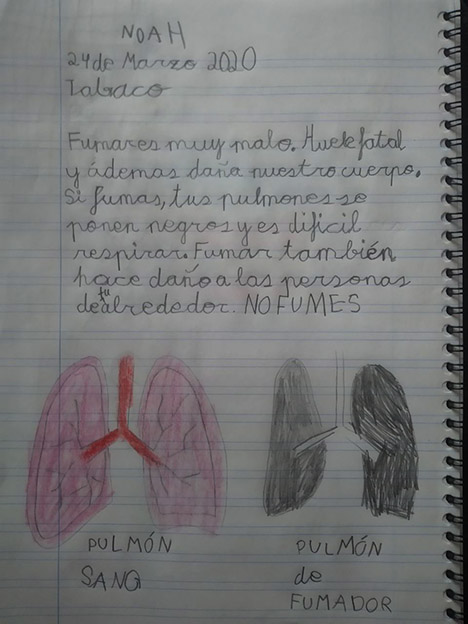 NOAH
24 de Marzo 2020
Tabaco
Fumar es muy malo. Huele fatal
y ádemas daña nuestro cuerpo.
Si fumas, tus pulmones se
ponen negros y es dificil
respirar. Fumar también
hace daño a las personas
de tu alrededor. NO FUMES
PULMÓN
SANO
PULMÓN
de
FUMADOR